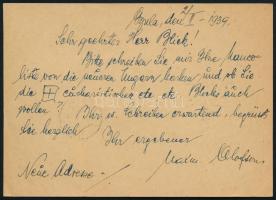 Gyula, den 2/II - 1939.
Sehr geehrter Herr Blick!
Bitte schreiben Sie mir Ihre Manco-
liste von die neueren Ungarn Marken und ob Sie
die eucharistischen etc. etc. Blocks auch
wollen? Ihr w. Schreiben erwartend, begrüsst
Sie herzlich
Ihr ergebener
Neue Adresse